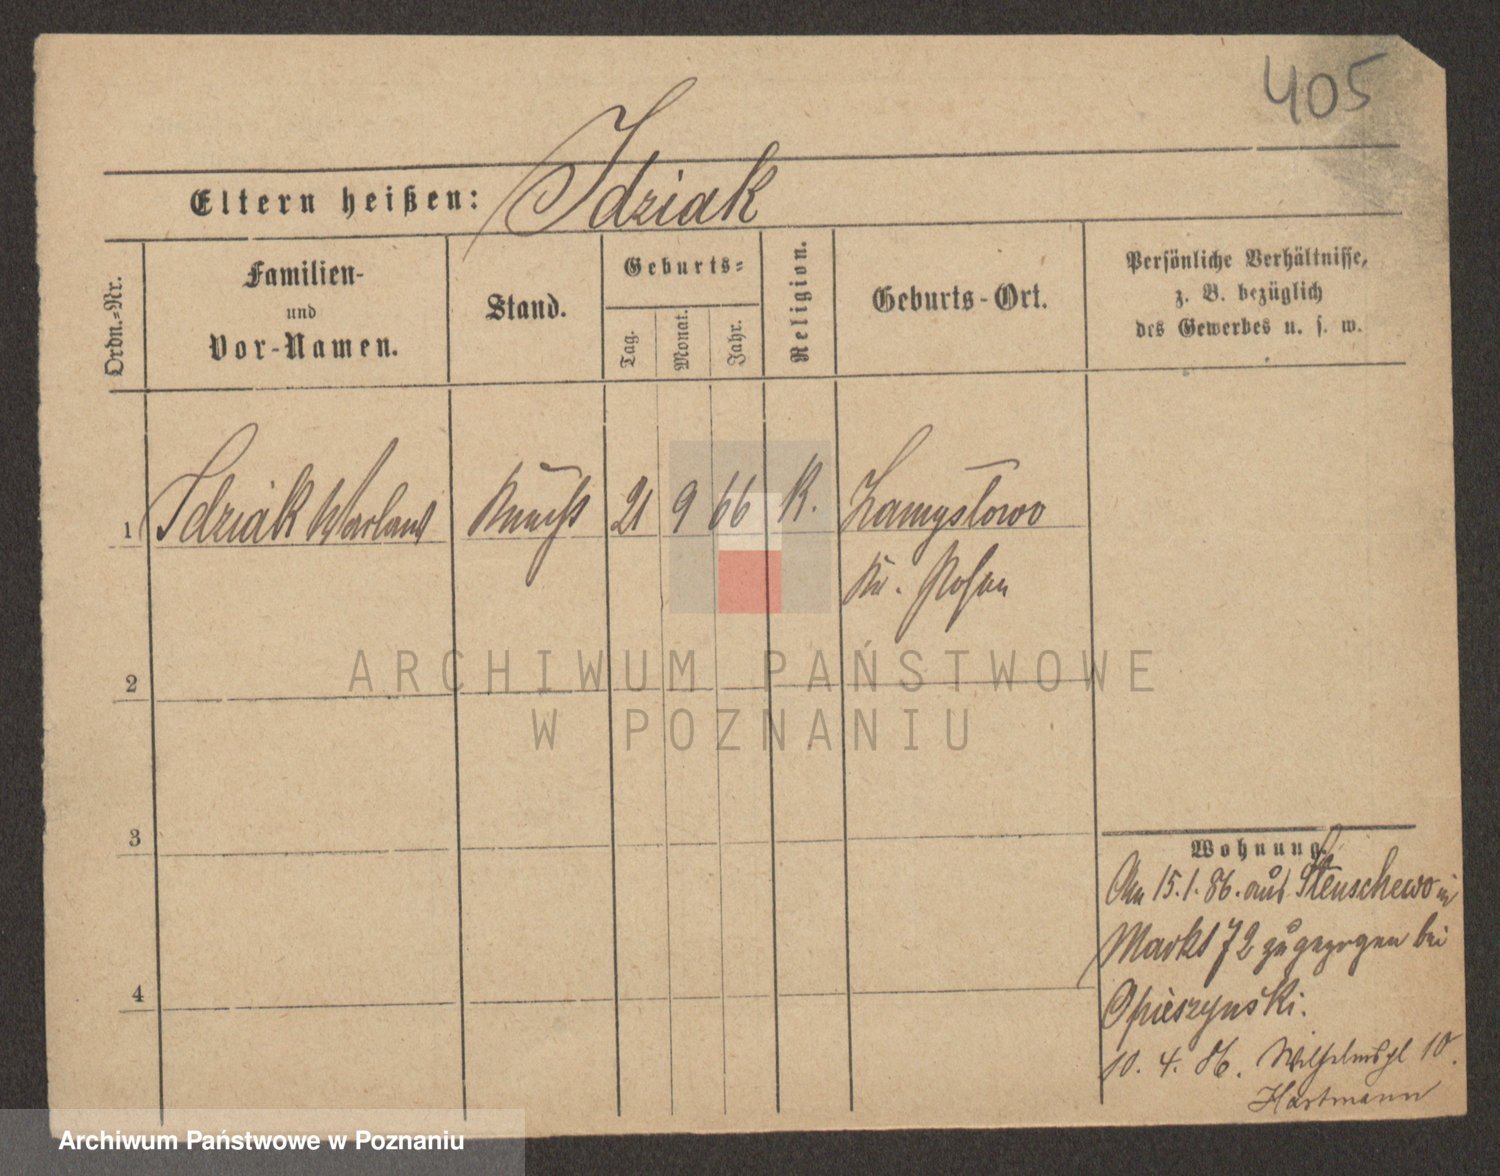 405
Eltern heißen: Idziak
Ordn.-Nr.
Familien-
und
Vor-Namen.
Stand.
Geburts-
Tag.
Monat.
Jahr.
Religion.
Geburts-Ort.
Persönliche Verhältnisse,
z. B. bezüglich
des Gewerbes u. s. w.
1 Idziak Knecht 21 9 66 K. Zamysłowo
Kr. Posen
2
3
4
Wohnung.
Am 15.1.86. aus Stenschewo in
Markt 72 zugezogen bei
Opieszynski.
10. 4. 86. Wilhelmspl 10.
Hartmann
ARCHIWUM PAŃSTWOWE
W POZNANIU
Archiwum Państwowe w Poznaniu